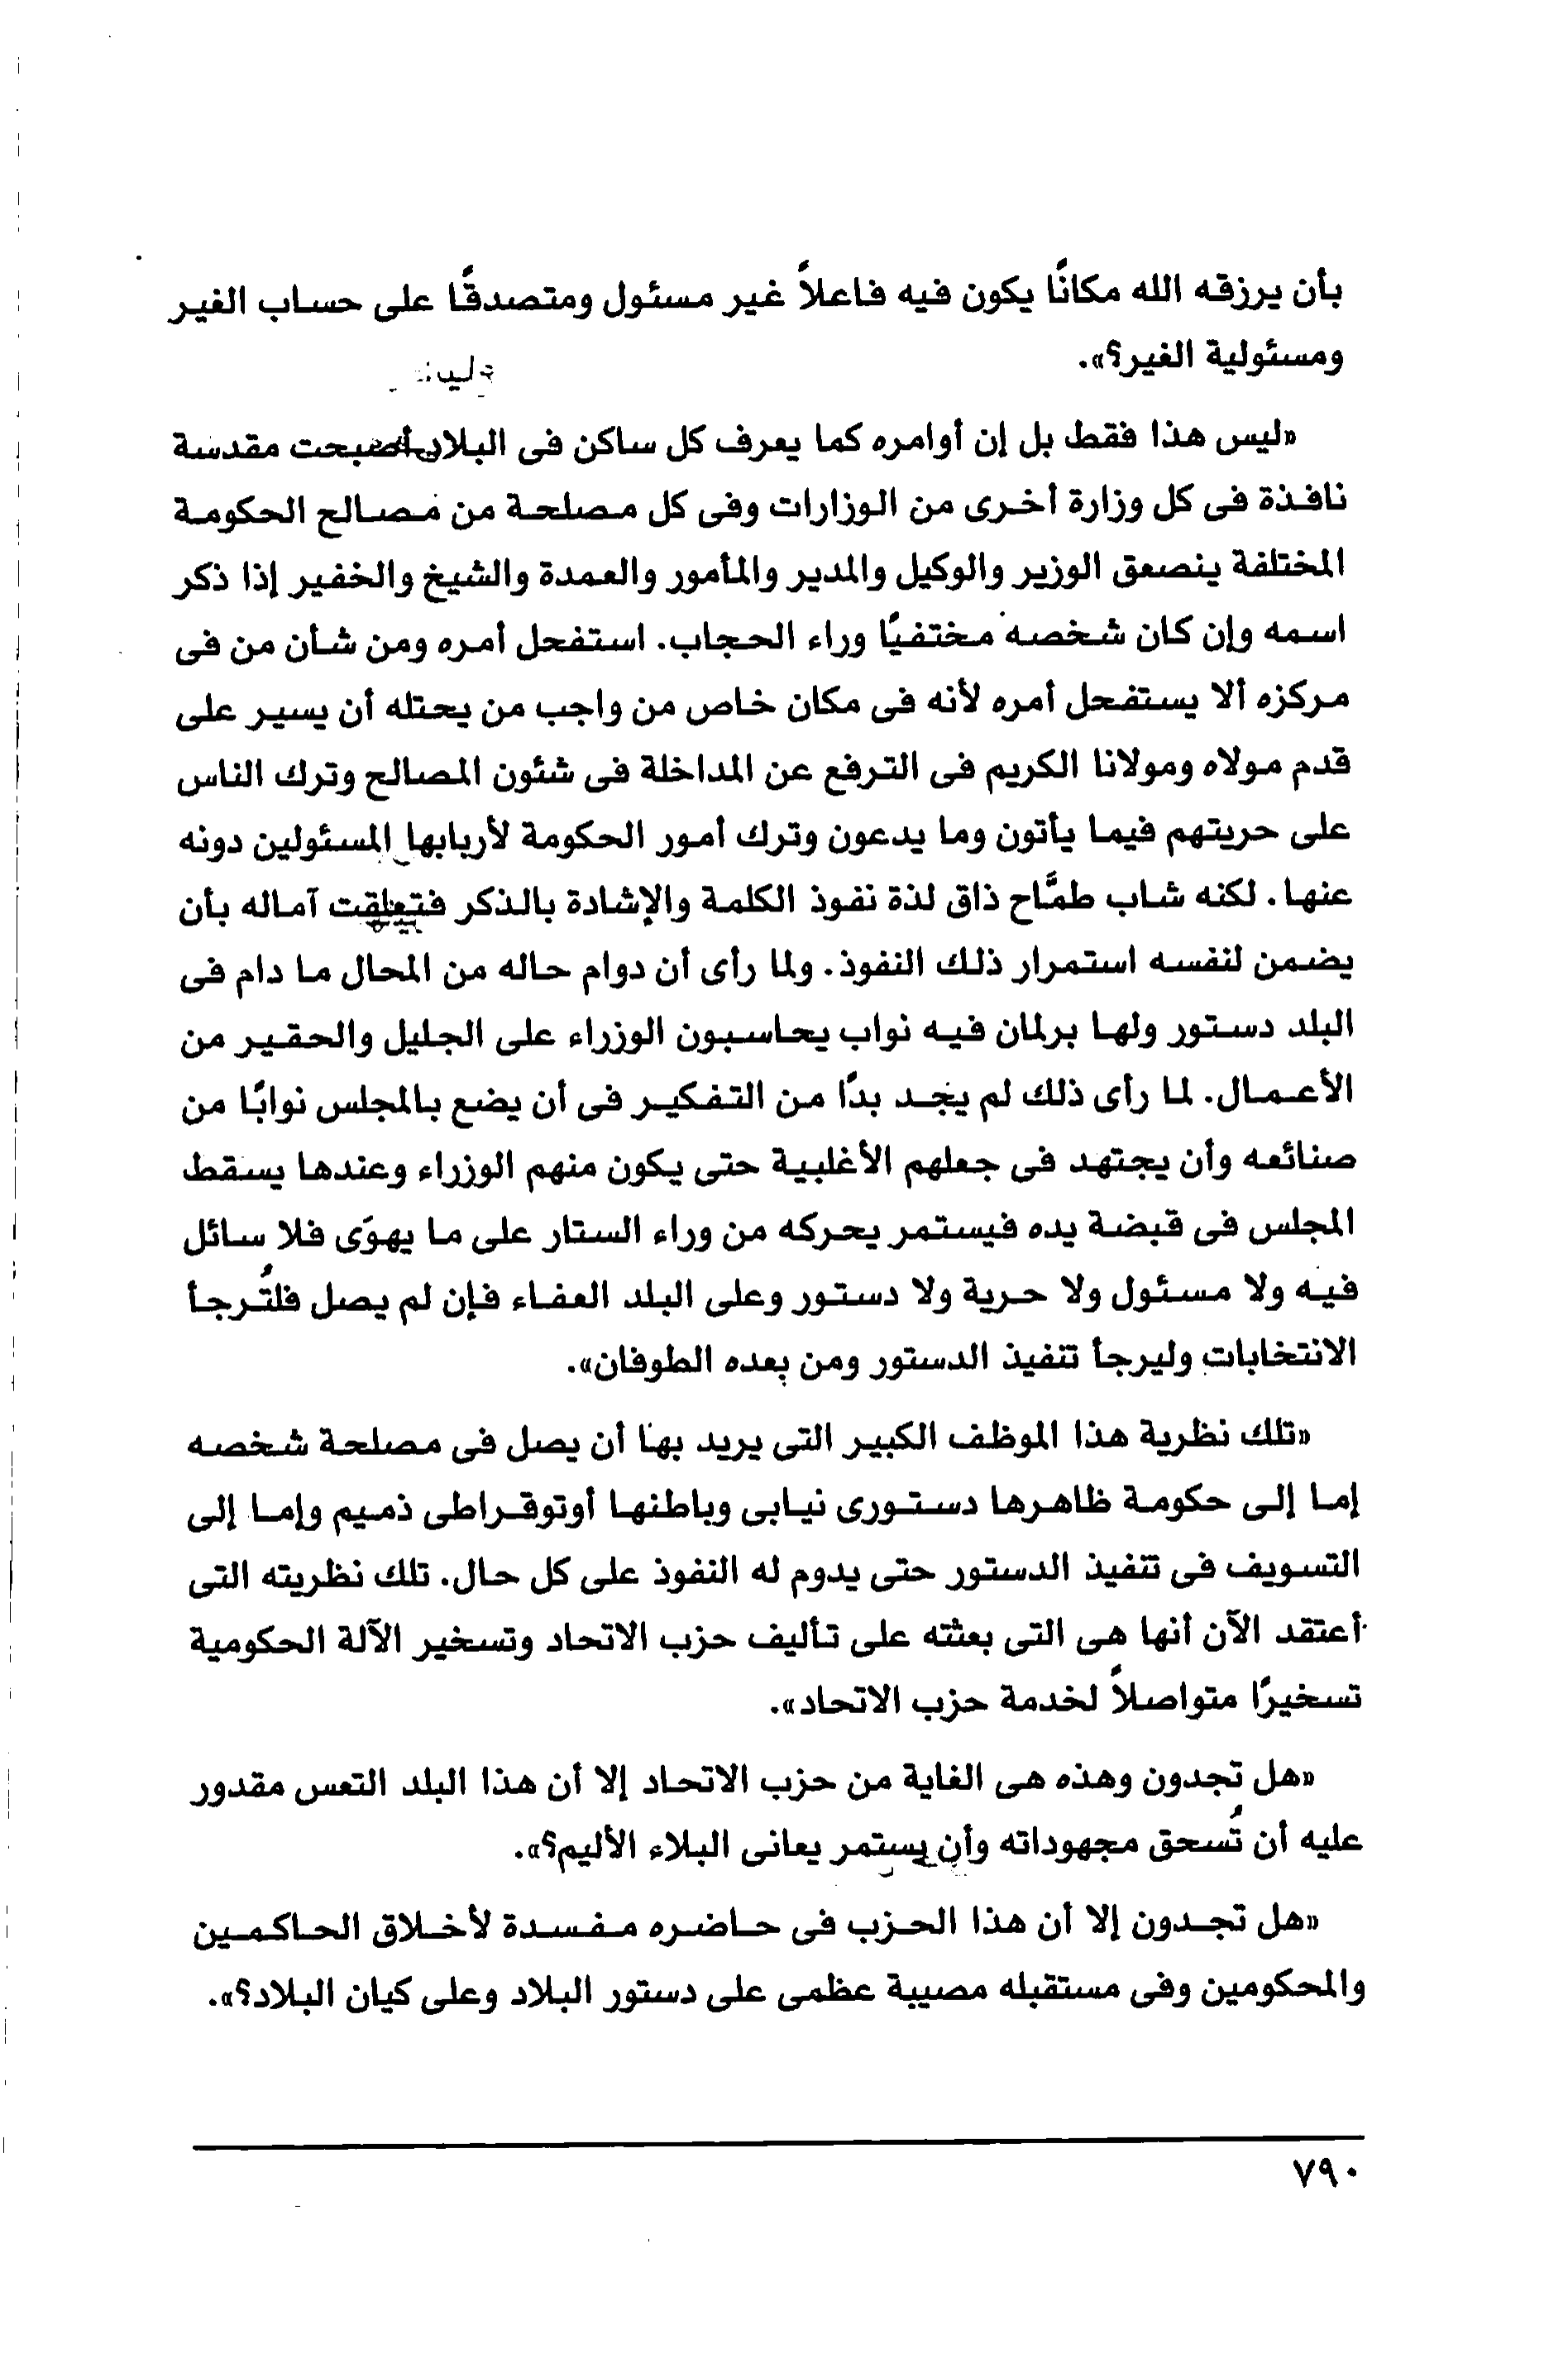 بأن يرزقه الله مكانًا يكون فيه فاعلاً غير مسئول ومتصدقًا على حساب الغير
ومسئولية الغير؟».
«ليس هذا فقط بل إن أوامره كما يعرف كل ساكن فى البلاد أصبحت مقدسة
نافذة فى كل وزارة أخرى من الوزارات وفى كل مصلحة من مصالح الحكومة
المختلفة ينصعق الوزير والوكيل والمدير والمأمور والعمدة والشيخ والخفير إذا ذكر
اسمه وإن كان شخصه مختفيًا وراء الحجاب. استفحل أمره ومن شأن من فى
مركزه ألا يستفحل أمره لأنه فى مكان خاص من واجب من يحتله أن يسير على
قدم مولاه ومولانا الكريم فى الترفع عن المداخلة فى شئون المصالح وترك الناس
على حريتهم فيما يأتون وما يدعون وترك أمور الحكومة لأربابها المسئولين دونه
عنها. لكنه شاب طمَّاح ذاق لذة نفوذ الكلمة والإشادة بالذكر فتعلقت آماله بأن
يضمن لنفسه استمرار ذلك النفوذ. ولما رأى أن دوام حاله من المحال ما دام فى
البلد دستور ولها برلمان فيه نواب يحاسبون الوزراء على الجليل والحقير من
الأعمال. لما رأى ذلك لم يجد بدًا من التفكير فى أن يضع بالمجلس نوابًا من
صنائعه وأن يجتهد فى جعلهم الأغلبية حتى يكون منهم الوزراء وعندها يسقط
المجلس فى قبضة يده فيستمر يحركه من وراء الستار على ما يهوَى فلا سائل
فيه ولا مسئول ولا حرية ولا دستور وعلى البلد العفاء فإن لم يصل فلتُرجأ
الانتخابات وليرجأ تنفيذ الدستور ومن بعده الطوفان».
«تلك نظرية هذا الموظف الكبير التى يريد بها أن يصل فى مصلحة شخصه
إما إلى حكومة ظاهرها دستورى نيابى وباطنها أوتوقراطى ذميم وإما إلى
التسويف فى تنفيذ الدستور حتى يدوم له النفوذ على كل حال. تلك نظريته التى
أعتقد الآن أنها هى التى بعثته على تأليف حزب الاتحاد وتسخير الآلة الحكومية
تسخيرًا متواصلاً لخدمة حزب الاتحاد».
«هل تجدون وهذه هى الغاية من حزب الاتحاد إلا أن هذا البلد التعس مقدور
عليه أن تُسحق مجهوداته وأن يستمر يعانى البلاء الأليم؟».
«هل تجدون إلا أن هذا الحزب فى حاضره مفسدة لأخلاق الحاكمين
والمحكومين وفى مستقبله مصيبة عظمى على دستور البلاد وعلى كيان البلاد؟».
٧٩٠